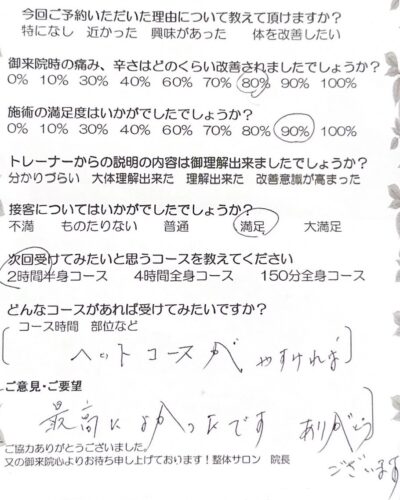 今回ご予約いただいた理由について教えて頂けますか？
特になし 近かった 興味があった 体を改善したい
御来院時の痛み、辛さはどのくらい改善されましたでしょうか？
0% 10% 30% 40% 60% 70% 80% 90% 100%
施術の満足度はいかがでしたでしょうか？
0% 10% 30% 40% 60% 70% 80% 90% 100%
トレーナーからの説明の内容は御理解出来ましたでしょうか？
分かりづらい 大体理解出来た 理解出来た 改善意識が高まった
接客についてはいかがでしたでしょうか？
不満 ものたりない 普通 満足 大満足
次回受けてみたいと思うコースを教えてください
2時間半身コース 4時間全身コース 150分全身コース
どんなコースがあれば受けてみたいですか？
コース時間 部位など
ヘットコースが やすければ
ご意見・ご要望
最高によかったです ありがとう
ございます
ご協力ありがとうございました。
又の御来院心よりお待ち申し上げております！整体サロン 院長